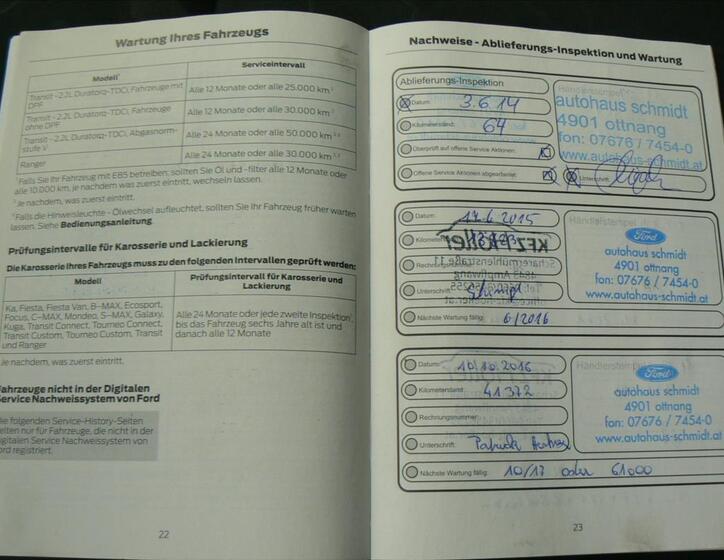 Wartung Ihres Fahrzeugs
Modell¹
Serviceintervall
Transit -2.2L Duratorq-TDCi, Fahrzeuge mit DPF
Alle 12 Monate oder alle 25.000 km
Transit -2.2L Duratorq-TDCi, Fahrzeuge ohne DPF
Alle 12 Monate oder alle 30.000 km
Transit -2.2L Duratorq-TDCi, Abgasnorm-
stufe V
Alle 24 Monate oder alle 50.000 km
Ranger
Alle 24 Monate oder alle 30.000 km
Falls Sie Ihr Fahrzeug mit E85 betreiben, sollten Sie Öl und -filter alle 12 Monate oder
alle 10.000 km, je nachdem was zuerst eintritt, wechseln lassen.
Je nachdem, was zuerst eintritt.
Falls die Hinweisleuchte - Ölwechsel aufleuchtet, sollten Sie Ihr Fahrzeug früher warten
lassen. Siehe Bedienungsanleitung
Prüfungsintervalle für Karosserie und Lackierung
Die Karosserie Ihres Fahrzeugs muss zu den folgenden Intervallen geprüft werden:
Modell
Prüfungsintervall für Karosserie und
Lackierung
Ka, Fiesta, Fiesta Van, B-MAX, Ecosport,
Focus, C-MAX, Mondeo, S-MAX, Galaxy,
Kuga, Transit Connect, Tourneo Connect,
Transit Custom, Tourneo Custom, Transit
und Ranger
Alle 24 Monate oder jede zweite Inspektion
bis das Fahrzeug sechs Jahre alt ist und
danach alle 12 Monate
Je nachdem, was zuerst eintritt.
ahrzeuge nicht in der Digitalen
Service Nachweissystem von Ford
ie folgenden Service-History-Seiten
elten nur für Fahrzeuge, die nicht in der
igitalen Service Nachweissystem von
ord registriert.
22
Nachweise - Ablieferungs-Inspektion und Wartung
Ablieferungs-Inspektion
Datum: 3.6.14
Kilometerstand: 64
Überprüft auf offene Service Aktionen:
Offene Service Aktionen abgearbeitet:
Händlerstempel
autohaus schmidt
4901 ottnang
fon: 07676 / 7454-0
www.autohaus-schmidt.at
Unterschrift:
Datum: 17.6.2015
Kilometer
Rechnung
Unterschrift:
Nächste Wartung fällig: 6/2016
Händlerstempel
Ford
autohaus schmidt
4901 ottnang
fon: 07676 / 7454-0
www.autohaus-schmidt.at
Datum: 10.10.2016
Kilometerstand: 41372
Rechnungsnummer:
Unterschrift: Patrick
Nächste Wartung fällig: 10/17 oder 61000
Händlerstempel
Ford
autohaus schmidt
4901 ottnang
fon: 07676 / 7454-0
www.autohaus-schmidt.at
23